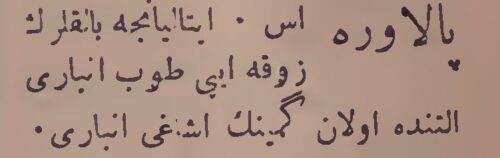 پالاوره اس ۰ ايتاليانجه بالقلرك
زوقه ايپى طوب انبارى
التنده اولان گمينك اشغى انبارى ۰